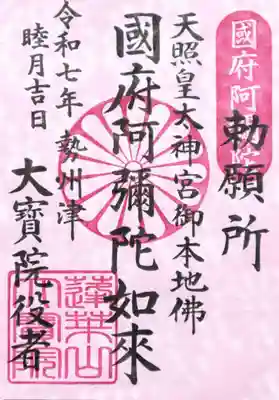 國府阿弥陀
勅願所
天照皇大神宮御本地佛
國府阿彌陀如來
令和七年
睦月吉日
勢州津
大寶院役者
蓬莱山